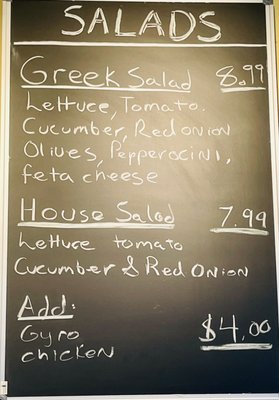 SALADS
Greek Salad 8.99
Lettuce, Tomato.
Cucumber, Red onion
Olives, Pepperocini,
feta cheese
House Salad 7.99
Lettuce tomato
Cucumber & Red Onion
Add:
Gyro $4.00
chicken